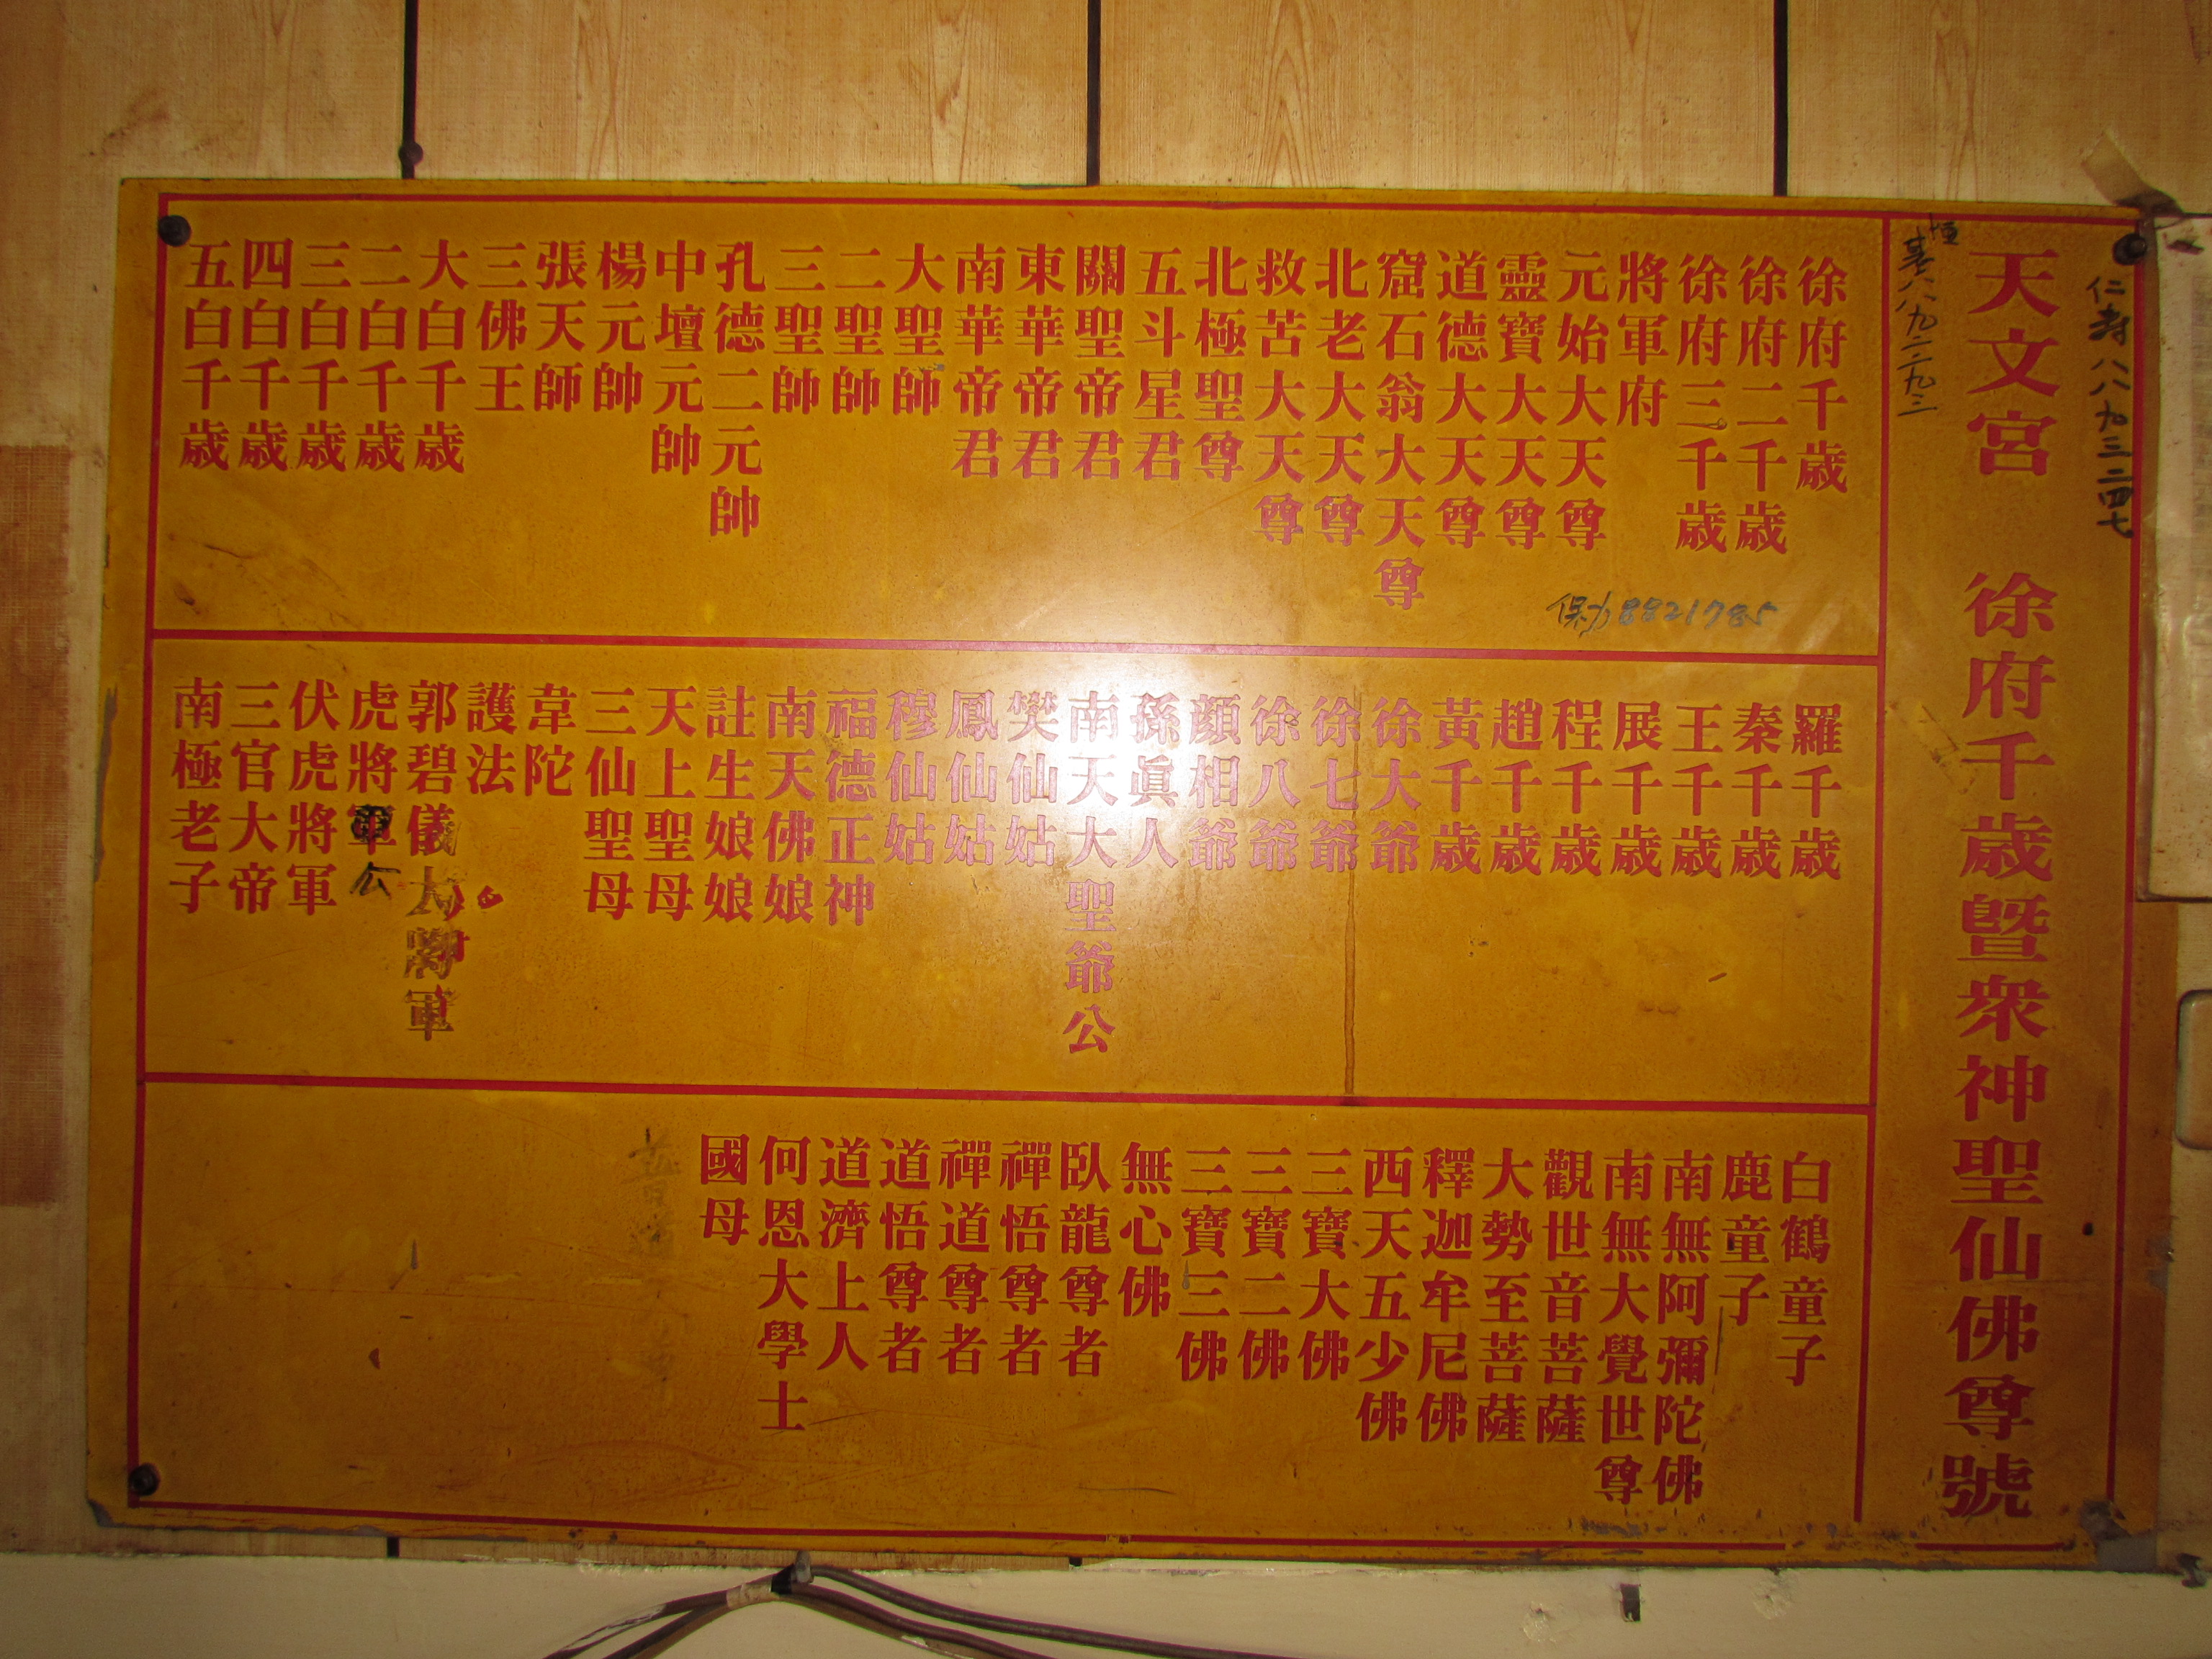 天文宮　徐府千歲暨眾神聖仙佛尊號
仁壽八八九三二四七
八八九二二九三
徐府千歲
徐府二千歲
徐府三千歲
將軍府
元始大天尊
靈寶大天尊
道德大天尊
窟石翁大天尊
北老大天尊
救苦大天尊
北極聖尊
五斗星君
關聖帝君
東華帝君
南華帝君
大聖帥
二聖帥
三聖帥
孔德二元帥
中壇元帥
楊元帥
張天師
三佛王
大白千歲
二白千歲
三白千歲
四白千歲
五白千歲
保力8821785
羅千歲
秦千歲
王千歲
展千歲
程千歲
趙千歲
黃千歲
徐大爺
徐七爺
徐八爺
顏相爺
孫眞人
南天大聖爺公
樊仙姑
鳳仙姑
穆仙姑
福德正神
南天佛娘
註生娘娘
天上聖母
三仙聖母
韋陀
護法
郭碧儀大將軍
虎將軍公
伏虎將軍
三官大帝
南極老子
白鶴童子
鹿童子
南無阿彌陀佛
南無大覺世尊
觀世音菩薩
大勢至菩薩
釋迦牟尼佛
西天五少佛
三寶大佛
三寶二佛
三寶三佛
無心佛
臥龍尊者
禪悟尊者
禪道尊者
道悟尊者
道濟上人
何恩大學士
國母